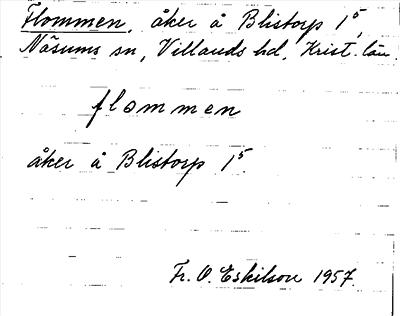 Flommen, åker å Blistorp 1⁵,
Näsums sn, Villands hd, Krist. län.
flommen
åker å Blistorp 1⁵.
Fr. O. Eskilson 1957.